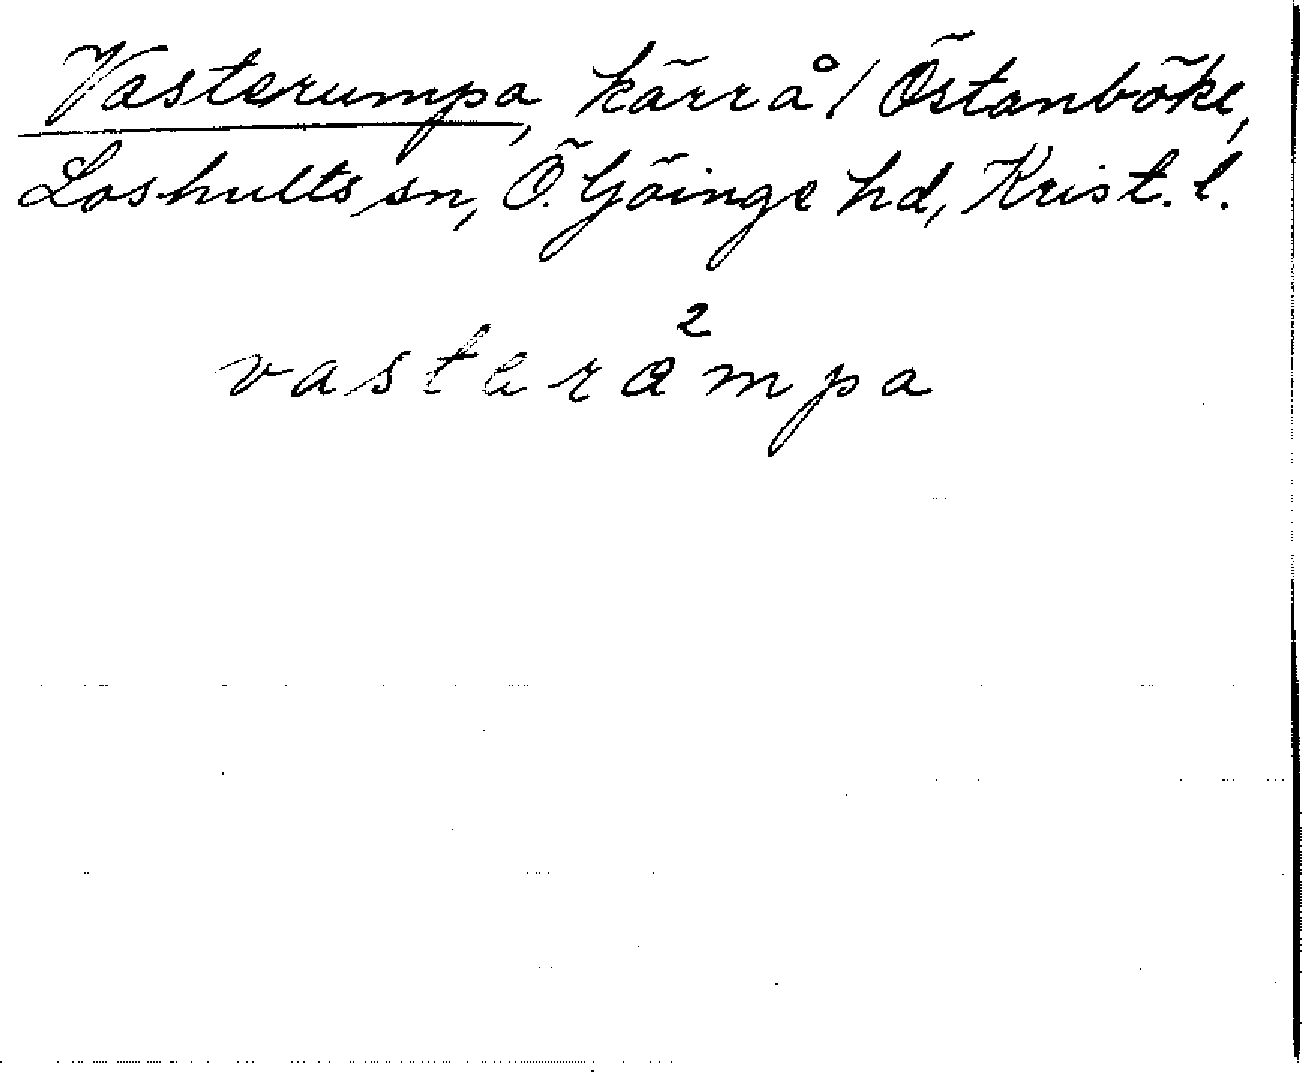 Vasterumpa, kärr å/ Östanböke,
Loshults sn, Ö. Göinge hd, Krist. l.
vasterå²mpa